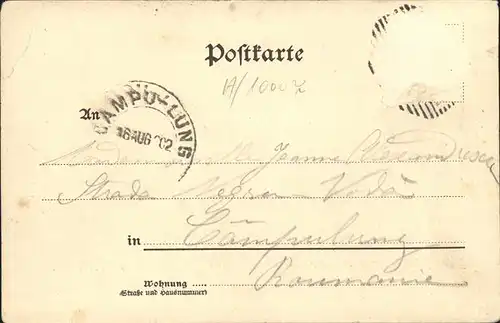 Postkarte
A/1000Z
An
CAMPU-LUNG
16 AUG 02
Mademoiselle Jeanne
Strada Negru-Vodă
in Câmpulung
Wohnung Roumanie
(Straße und Hausnummer)